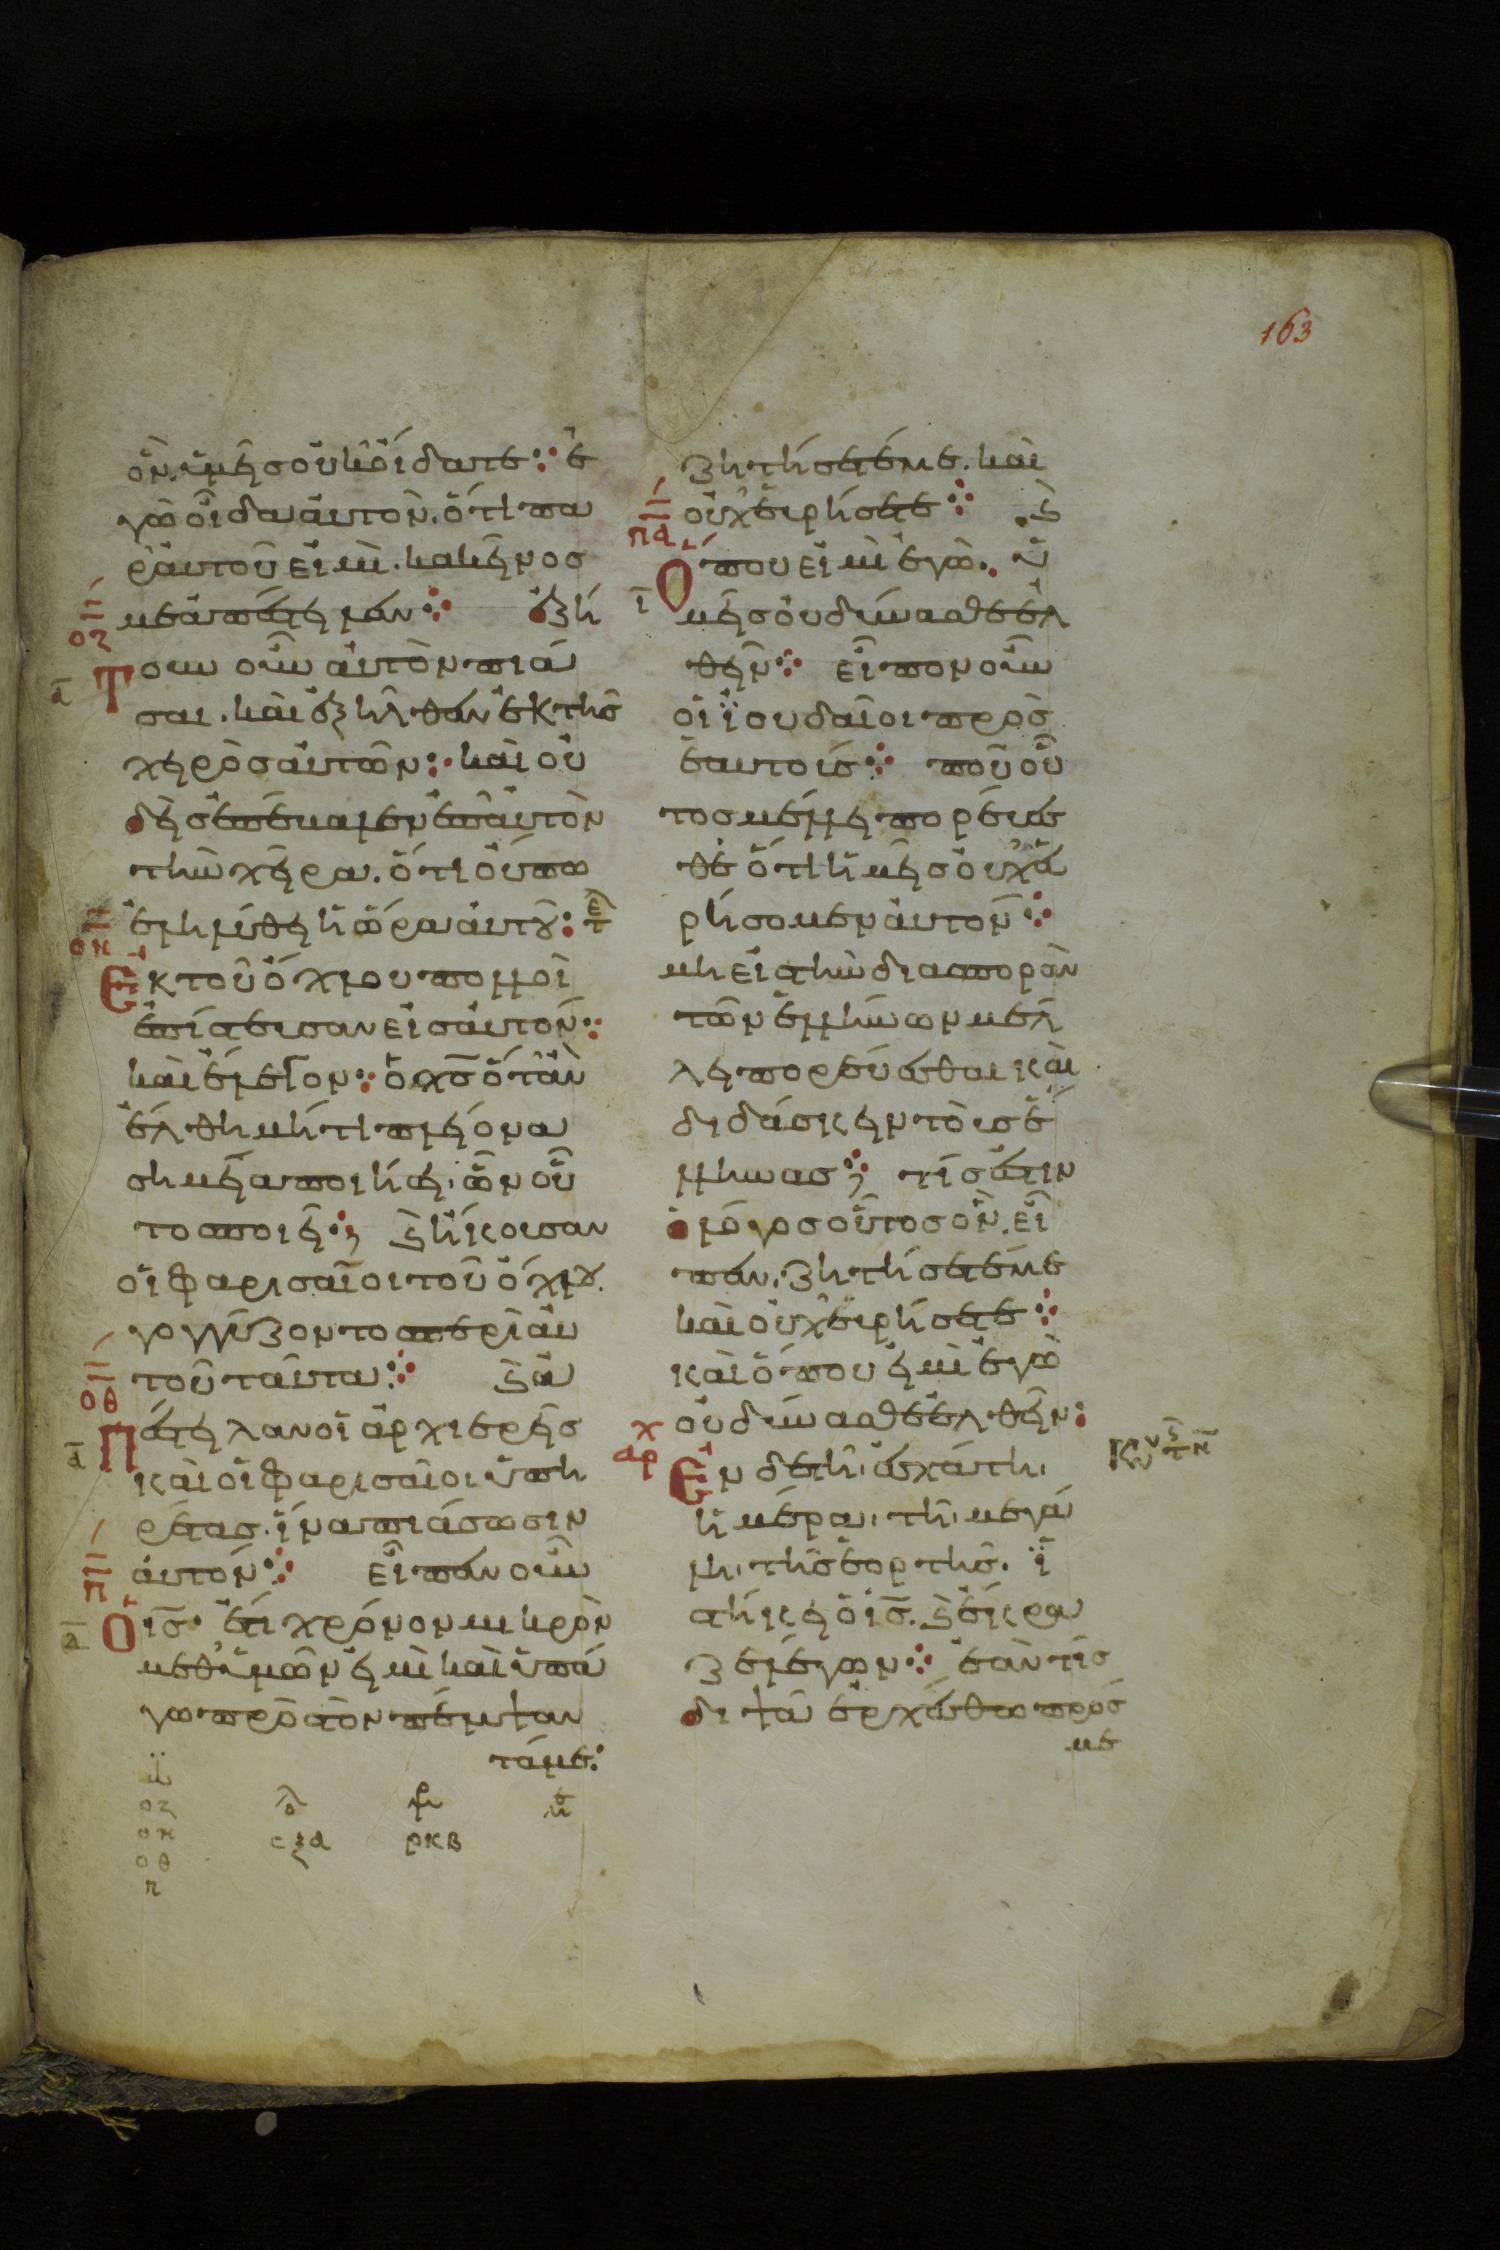 163
ὃν ὑμεῖς οὐκ οἴδατε· ἐ
γὼ οἶδα αὐτὸν. ὅτι πα
ρ αὐτοῦ εἰμὶ. κακεῖνος
με ἀπέστειλεν· ἐζή
οζ
α
Τουν οὖν αὐτὸν πιά
σαι. καὶ ἐξῆλθεν ἐκ τῆς
χειρὸς αὐτῶν· καὶ οὐ
δεὶς ἐπέβαλεν ἐπ αὐτὸν
τὴν χεῖρα. ὅτι οὔπω
ἐληλύθει ἡ ὥρα αὐτοῦ·
οη
Ἐκ τοῦ ὄχλου πολλοὶ
ἐπίστευσαν εἰς αὐτόν·
καὶ ἔλεγον· ὁ χς ὅταν
ἔλθη μήτι πλείονα
σημεῖα ποιήσει. ὧν οὗ
το ποιεῖ; καὶ ἤκουσαν
οἱ φαρισαῖοι τοῦ ὄχλου.
γογγύζοντο περὶ αὐ
τοῦ ταῦτα· καὶ ἀ
οθ
α
Πέστειλαν οἱ ἀρχιερεῖς
καὶ οἱ φαρισαῖοι ὑπη
ρέτας. ἵνα πιάσωσιν
αὐτόν· εἶπεν οὖν
π
Ὁ ις. ἔτι χρόνον μικρὸν
μεθ ὑμῶν εἰμὶ καὶ ὑπά
γω πρὸς τὸν πέμψαν
τά με·
οζ
οη
οθ
π
σξα
ρκβ
ζητήσετέ με. καὶ
οὐχ εὑρήσετε· καὶ
πα
ι
Ὅπου εἰμὶ ἐγὼ. ὑ
μεῖς οὐ δύνασθε ἐλ
θεῖν· εἶπον οὖν
οἱ ἰουδαῖοι πρὸς
ἑαυτούς· ποῦ οὗ
τος μέλλει πορεύεσ
θε ὅτι ἡμεῖς οὐχ εὑ
ρήσομεν αὐτόν·
μὴ εἰς τὴν διασπορὰν
τῶν ἑλλήνων μέλ
λει πορεύεσθαι καὶ
διδάσκειν τοὺς ἕλ
ληνας; τίς ἐστιν
ὁ λόγος οὗτος ὃν εἶ
πεν. ζητήσετέ με
καὶ οὐχ εὑρήσετε·
καὶ ὅπου εἰμὶ ἐγὼ
οὐ δύνασθε ἐλθεῖν:
χ
αρ
Ἐν δὲ τῆ ἐσχάτη
ἡμέρα τῆ μεγά
λη τῆς ἑορτῆς. ἱ
στήκει ὁ ις. καὶ ἔκρα
ζε λέγων· ἐάν τις
διψᾶ ἐρχέσθω πρός
με